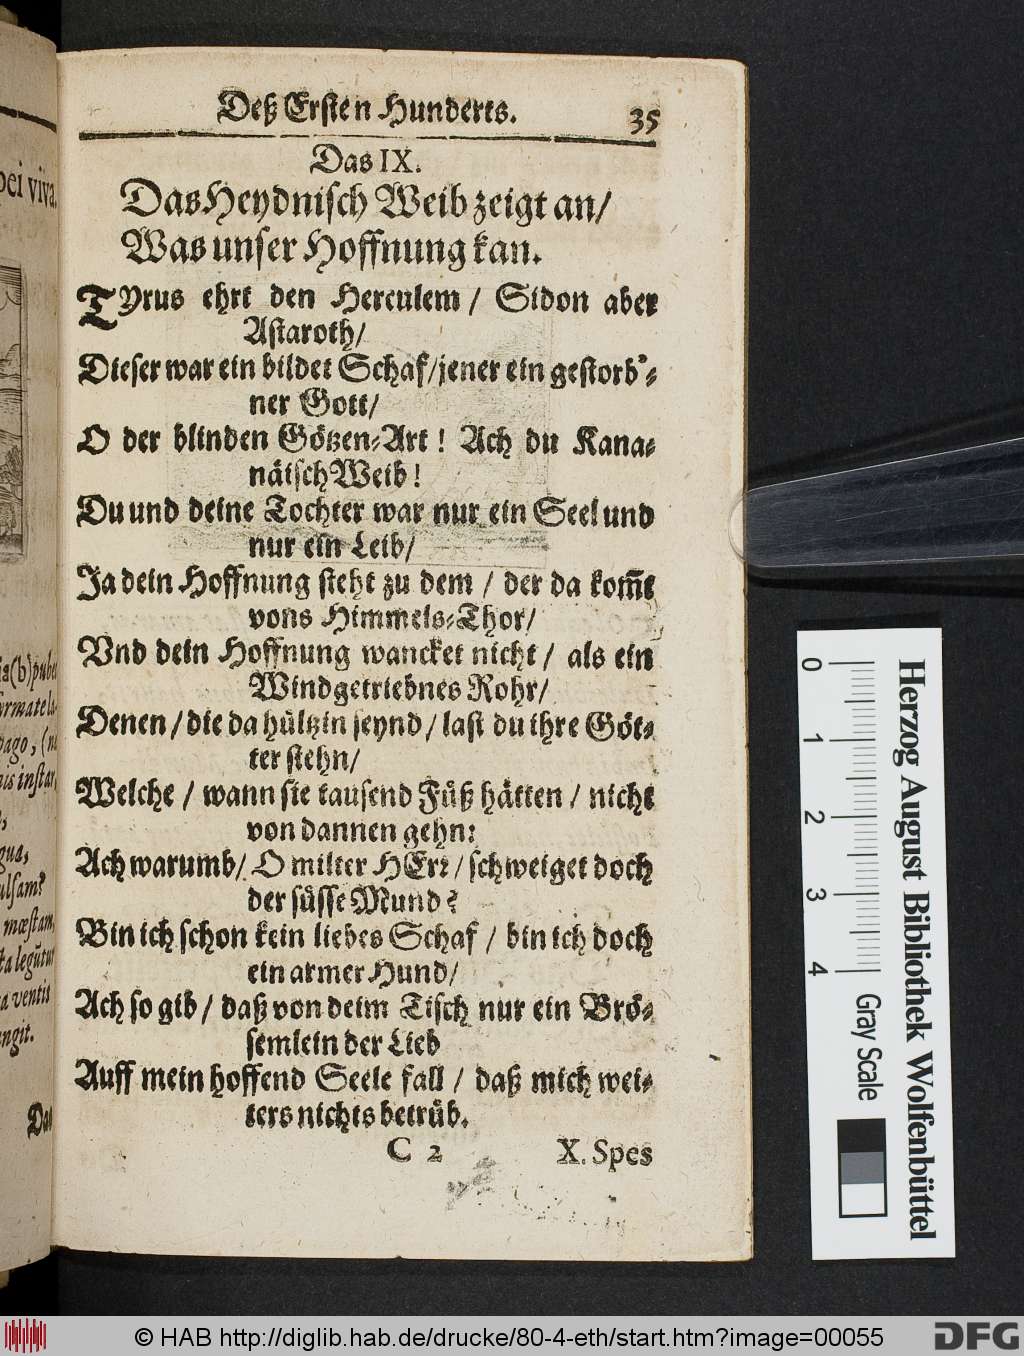 Deß Ersten Hunderts. 35
Das IX.
Das Heydnisch Weib zeigt an/
Was unser Hoffnung kan.
Tyrus ehrt den Herculem / Sidon aber
Astaroth/
Dieser war ein bildet Schaf/jener ein gestorb'-
ner Gott/
O der blinden Götzen-Art! Ach du Kana-
näisch Weib!
Du und deine Tochter war nur ein Seel und
nur ein Leib/
Ja dein Hoffnung steht zu dem / der da kom̃t
vons Himmels-Thor/
Vnd dein Hoffnung wancket nicht / als ein
Windgetriebnes Rohr/
Denen / die da hültzin seynd / last du ihre Göt-
ter stehn/
Welche / wann sie tausend Füß hätten / nicht
von dannen gehn:
Ach warumb/ O milter HErr / schweiget doch
der süsse Mund?
Bin ich schon kein liebes Schaf / bin ich doch
ein armer Hund/
Ach so gib / daß von deim Tisch nur ein Brö-
semlein der Lieb
Auff mein hoffend Seele fall / daß mich wei-
ters nichts betrüb.
C 2 X. Spes
0 1 2 3 4
Gray Scale
Herzog August Bibliothek Wolfenbüttel
© HAB http://diglib.hab.de/drucke/80-4-eth/start.htm?image=00055
DFG